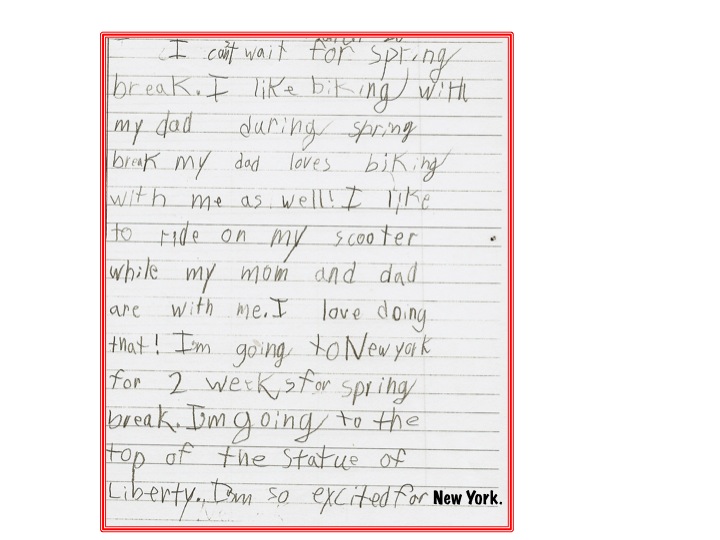 I can't wait for spring
break. I like biking with
my dad during spring
break my dad loves biking
with me as well! I like
to ride on my scooter
while my mom and dad
are with me. I love doing
that! I'm going to New york
for 2 weeks for spring
break. I'm going to the
top of the Statue of
Liberty. I'm so excited for New York.